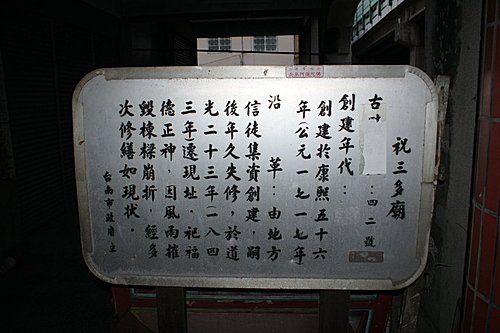 祝三多廟
古 :四二號
創建年代:
創建於康熙五十六
年(公元一七一七年
沿 革:由地方
信徒集資創建,嗣
後年久失修,於道
光二十三年(一八四
三年)遷現址。祀福
德正神,因風雨摧
毀棟樑崩折,經多
次修繕如現狀。
台南市政府立